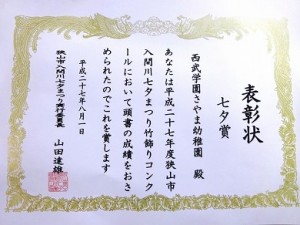 表彰状
七夕賞
西武学園さやま幼稚園 殿
あなたは平成二十七年度狭山市
入間川七夕まつり竹飾りコンク
ールにおいて頭書の成績をおさ
められたのでこれを賞します
平成二十七年八月一日
狭山市入間川七夕まつり実行委員会
山田達雄